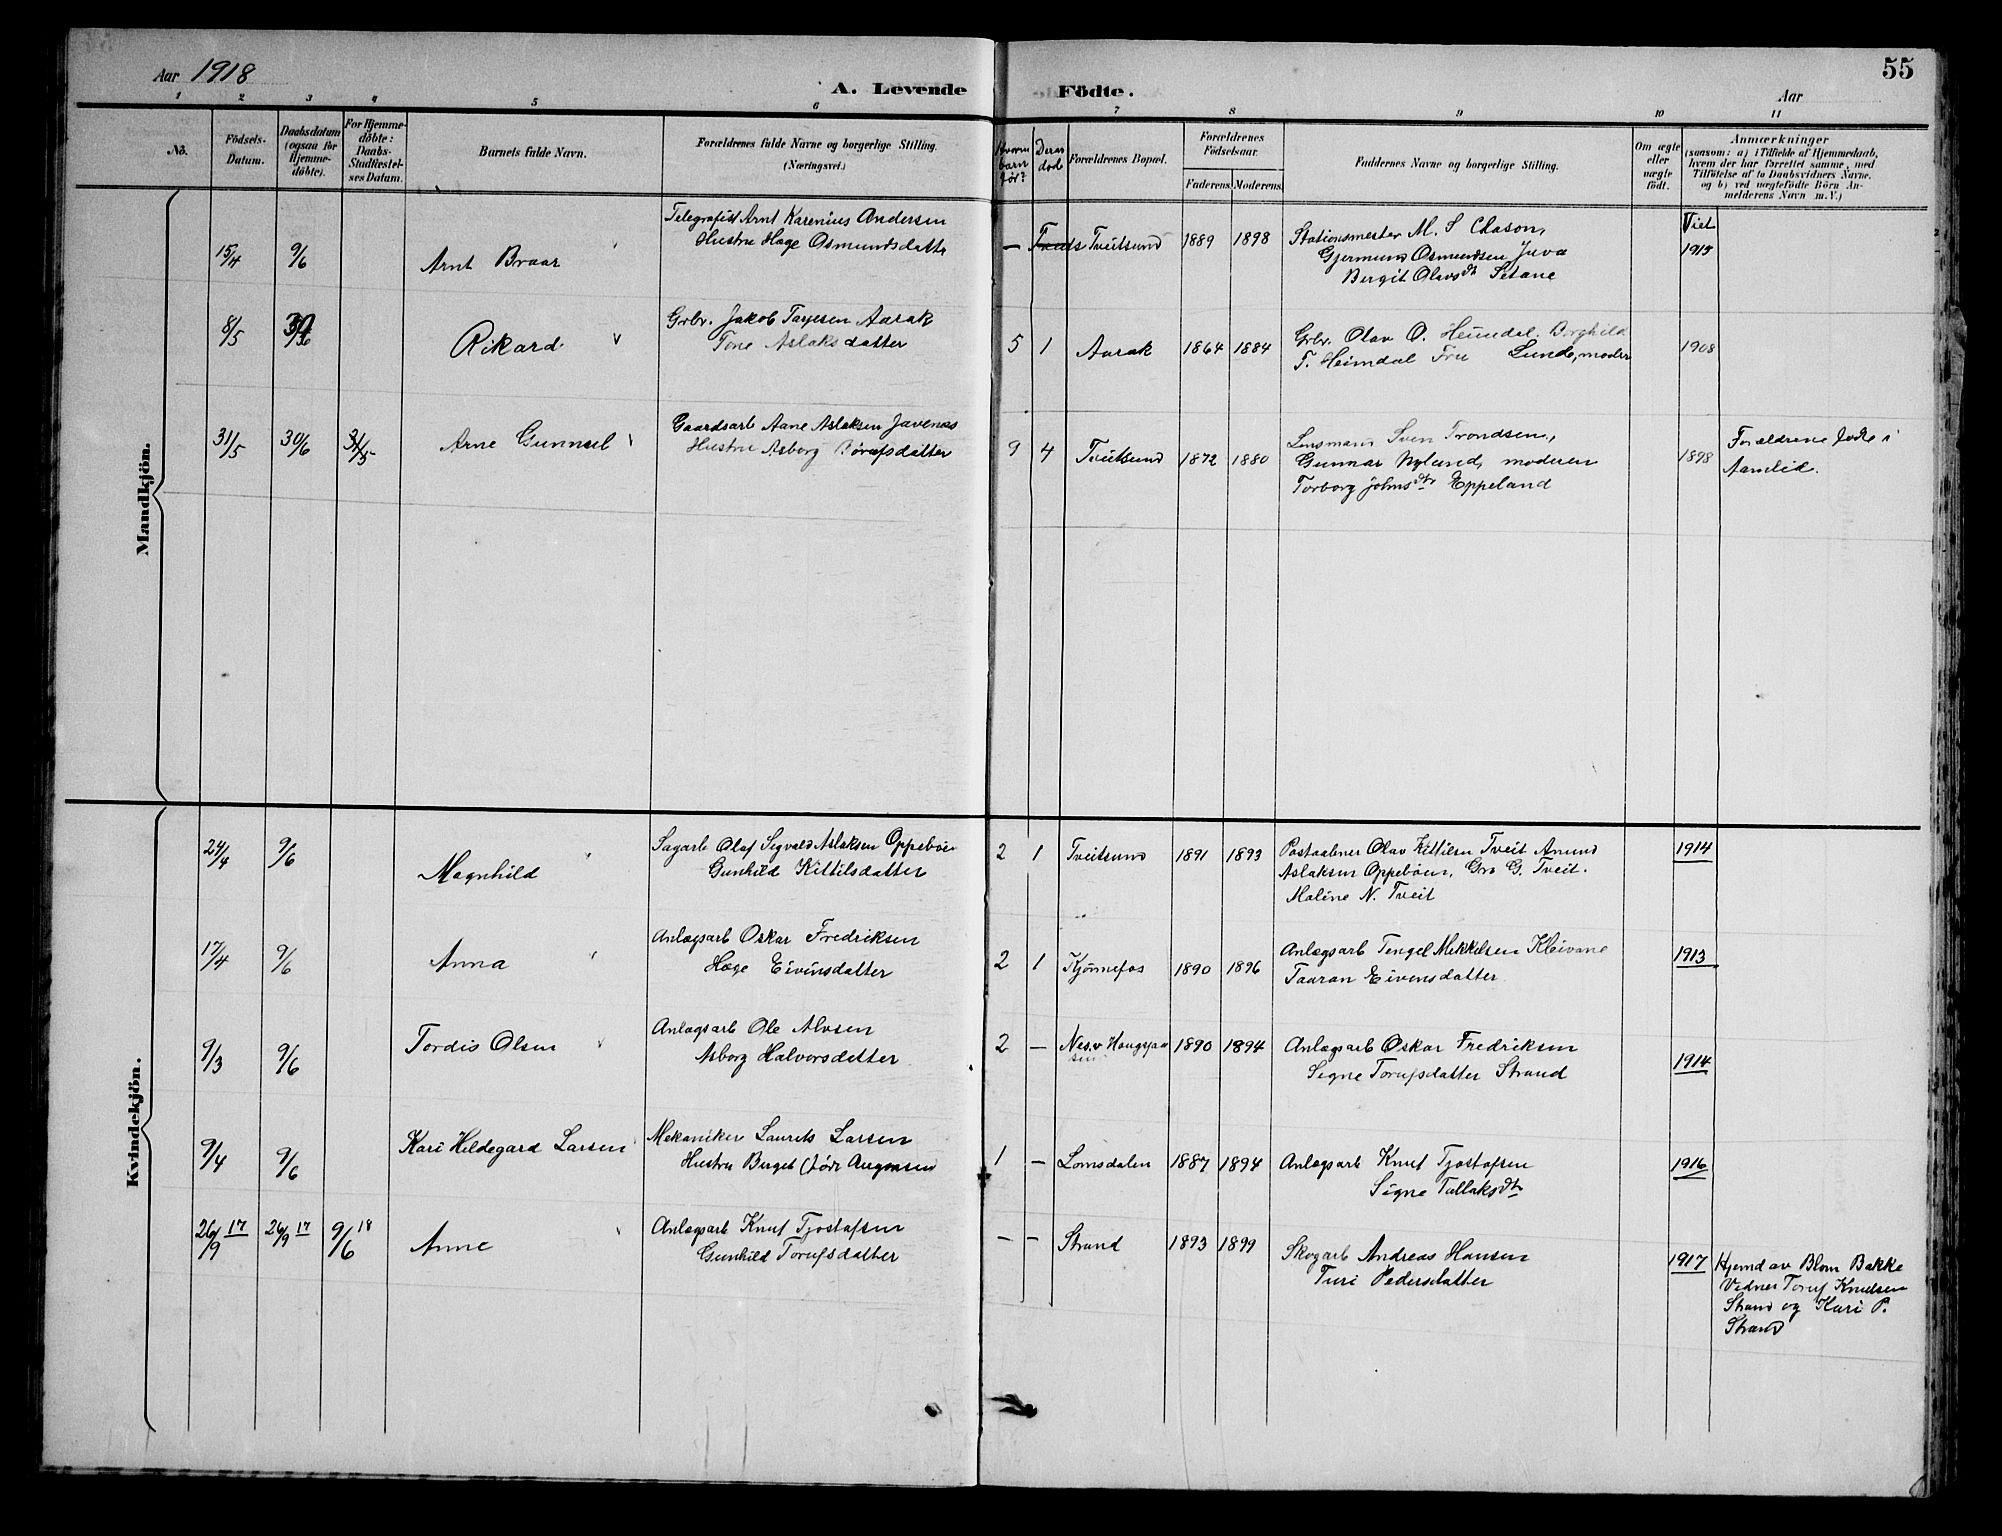 55
Aar 1918
A. Levende Födte.
Aar
1 2 3 4 5 6 7 8 9 10 11
No.
Födsels-
Datum.
Daabsdatum
(ogsaa for
Hjemme-
döbte).
For Hjemme-
döbte:
Daabs-
Stadfæstel-
ses Datum.
Barnets fulde Navn.
Forældrenes fulde Navne og borgerlige Stilling.
(Næringsvei.)
Hvormange
barn
før?
Deraf
död
Forældrenes Bopæl.
Forældrenes
Födselsaar.
Faderens. Moderens.
Faddernes Navne og borgerlig Stilling.
Om ægte
eller
uægte
födt.
Anmærkninger
(saasom: a) i Tilfælde af Hjemmedaab,
hvem der har forrettet samme, med
Tilföielse af to Daabsvidners Navne,
og b) ved uægtefödte Börn An-
melderens Navn m. V.)
Mandkjön.
15/4 9/6 Arnt Braar
Telegrafist Arnt Karenius Andersen
Hustru Hæge Osmundsdattr
— Tveitsund 1889 1898
Stationsmester M. S Clason,
Gjermund Osmundsen Juva
Bergit Olavsdtr Setane
Viet
1913
8/5 30/6 Rikard
Grbr. Jakob Tarjesen Aarak
Tone Aslaksdatter
5 1 Aarak 1864 1884
Grbr. Olav O. Heimdal. Borghild
T. Heimdal Fru Lunde, moder
1908
31/5 30/6 31/5 Arne Gunnul
Gaardsarb Aane Aslaksen Javenes
Hustru Asborg Börufsdatter
9 4 Tveitsund 1872 1880
Lensmann Sven Trondsen,
Gunnar Nylund, moderen
Torborg Johnsdtr Eppeland
1898
Forældrene födte i
Aamlid.
Kvindekjön.
24/4 9/6 Magnhild
Sagarb Olaf Sigvald Aslaksen Oppeböen
Gunhild Kittilsdatter
2 1 Tveitsund 1891 1893
Postaabner Olav Kittilsen Tveit Amund
Aslaksen Oppeböen, Gro G. Tveit.
Maline N. Tveit
1914
17/4 9/6 Anna
Anlægsarb Oskar Fredriksen
Hæge Eivinsdatter
2 1 Kjörrnefos 1890 1896
Anlægsarb Tengel Mikkelsen Kleivane
Taaran Eivensdatter
1913
9/3 9/6 Tordis Olsen
Anlægsarb Ole Alvsen
Asborg Halvorsdatter
2 — Nes.v Haugsjaa
sen 1890 1894
Anlægsarb Oskar Fredriksen
Signe Torufsdatter Strand
1914
9/4 9/6 Kari Hildegard Larsen
Mekaniker Laurits Larsen
Hustru Birget (födt Augonsen
1 — Lomsdalen 1887 1894
Anlægsarb Knut Tjostofsen
Signe Tallaksdtr
1916
26/9 17 26/9 17 9/6 18 Anne
Anlægsarb Knut Tjostafsen
Gunhild Torufsdatter
— — Strand 1893 1899
Skogarb Andreas Hansen
Turi Pedersdatter
1917
Hjemd av Blom Bakke
Vidner Toruf Knutsen
Strand og Kari P.
Strand